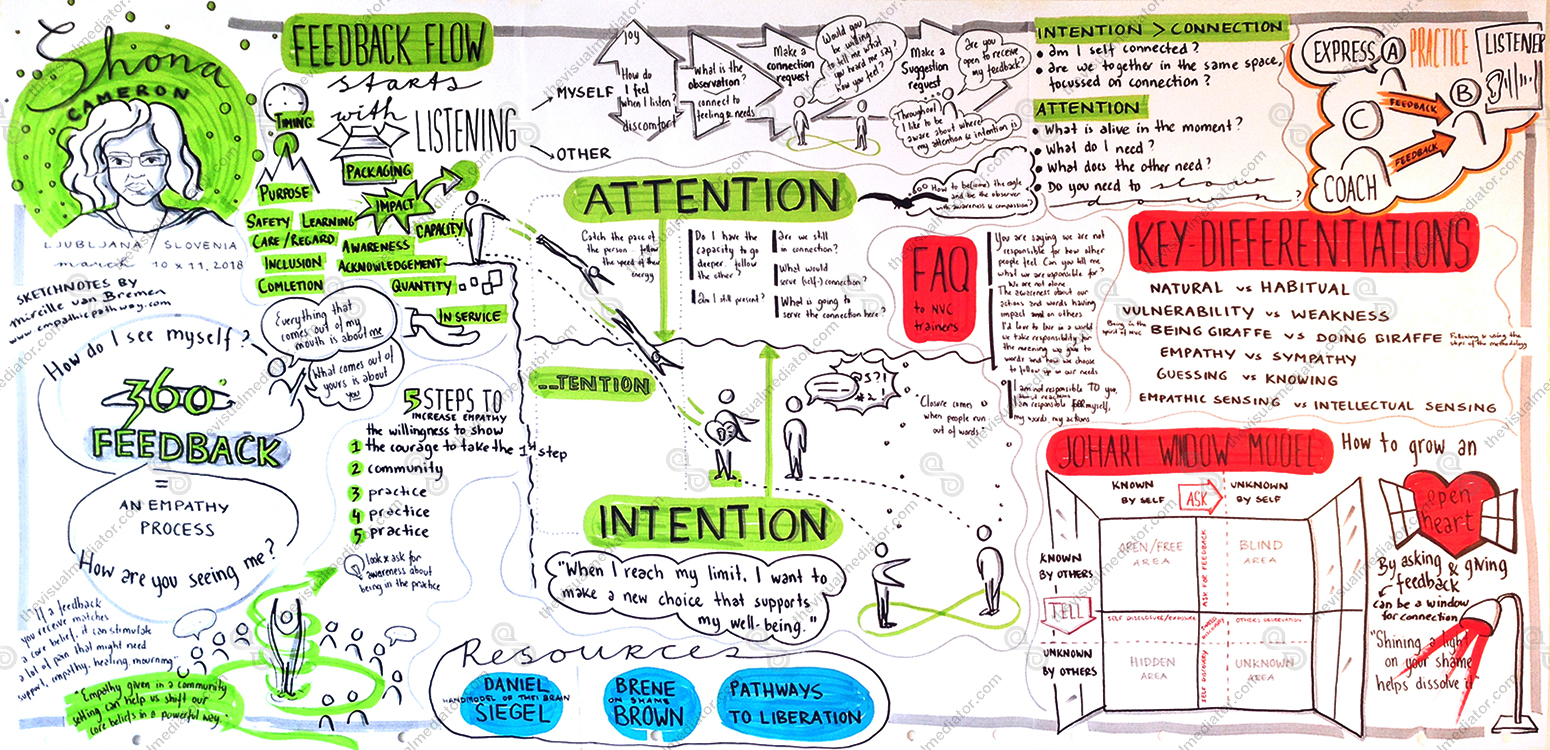 Shona
CAMERON
LJUBLJANA SLOVENIA
march 10 x 11, 2018
SKETCHNOTES BY
Mireille van Bremen
www.empathicpathway.com
FEEDBACK FLOW
starts
with
LISTENING
TIMING
PURPOSE
PACKAGING
IMPACT
SAFETY
LEARNING
CAPACITY
CARE/REGARD
AWARENESS
INCLUSION
ACKNOWLEDGEMENT
COMLETION
QUANTITY
IN SERVICE
MYSELF
OTHER
Joy
How do
I feel
when I listen?
discomfort
What is the
observation?
connect to
feeling & needs
Make a
connection
request
Would you
be willing
to tell me what
you heard me say?
how you feel?
Make a
Suggestion
request
are you
open to receive
my feedback?
Throughout
I like to be
aware about where
my attention & intention is
INTENTION > CONNECTION
• am I self connected?
• are we together in the same space,
focussed on connection?
ATTENTION
• What is alive in the moment?
• What do I need?
• What does the other need?
• Do you need to slow
down?
EXPRESS
A
PRACTICE
LISTENER
FEEDBACK
B
C
FEEDBACK
COACH
ATTENTION
How to be(come) the eagle
and be the observer
with awareness & compassion?
Catch the pace of
the person - follow
the speed of their
energy
Do I have the
capacity to go
deeper, follow
the other?
Am I still present?
are we still
in connection?
What would
serve (self-) connection?
What is going to
serve the connection here?
FAQ
to NVC
trainers
You are saying we are not
responsible for how other
people feel. Can you tell me
what we are responsible for?
We are not alone
The awareness about our
actions and words having
impact on others
I'd love to live in a world
we take responsibility for
the meaning we give to
words and how we choose
to follow up on our needs
I am not responsible TO you,
I am responsible FOR myself,
my words, my actions
KEY DIFFERENTIATIONS
NATURAL vs HABITUAL
VULNERABILITY vs WEAKNESS
Being in the
spirit of NVC
BEING GIRAFFE vs DOING GIRAFFE
Following & using the
steps of the methodology
EMPATHY vs SYMPATHY
GUESSING vs KNOWING
EMPATHIC SENSING vs INTELLECTUAL SENSING
How do I see myself?
Everything that
comes out of my
mouth is about me
What comes out of
yours is about
you
360°
FEEDBACK
=
AN EMPATHY
PROCESS
How are you seeing me?
5 STEPS TO
INCREASE EMPATHY
the willingness to show
1 the courage to take the 1st step
2 community
3 practice
4 practice
5 practice
look x ask for
awareness about
being in the practice
--TENTION
@S?!
#2!
"Closure comes
when people run
out of words."
INTENTION
"When I reach my limit, I want to
make a new choice that supports
my well-being."
"If a feedback
you receive matches
a core belief, it can stimulate
a lot of pain that might need
support, empathy, healing, mourning"
"Empathy given in a community
setting can help us shift our
core beliefs in a powerful way."
Resources
DANIEL
HANDMODEL OF THE BRAIN
SIEGEL
BRENE
ON SHAME
BROWN
PATHWAYS
TO LIBERATION
JOHARI WINDOW MODEL
KNOWN
BY SELF
ASK
UNKNOWN
BY SELF
KNOWN
BY OTHERS
TELL
UNKNOWN
BY OTHERS
OPEN/FREE
AREA
ASK FOR FEEDBACK
BLIND
AREA
SELF DISCLOSURE/EXPOSURE
SHARED
DISCOVERY
OTHERS OBSERVATION
HIDDEN
AREA
SELF DISCOVERY
UNKNOWN
AREA
How to grow an
open
heart
By asking & giving
feedback
can be a window
for connection
"Shining a light
on your shame
helps dissolve it"
thevisualmediator.com